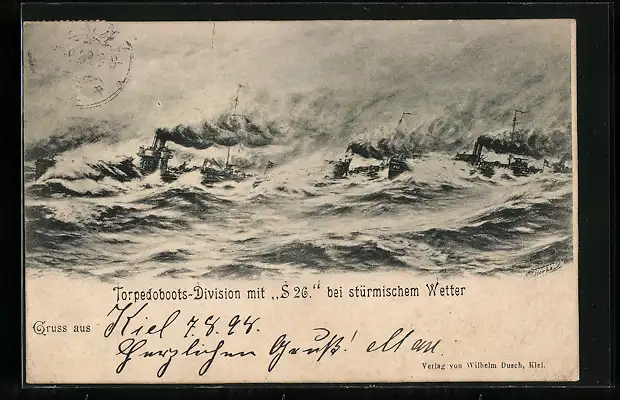 Torpedoboots-Division mit „S 26.“ bei stürmischem Wetter
Gruss aus Kiel 7.8.98.
Herzlichen Gruß!
Verlag von Wilhelm Dusch, Kiel.